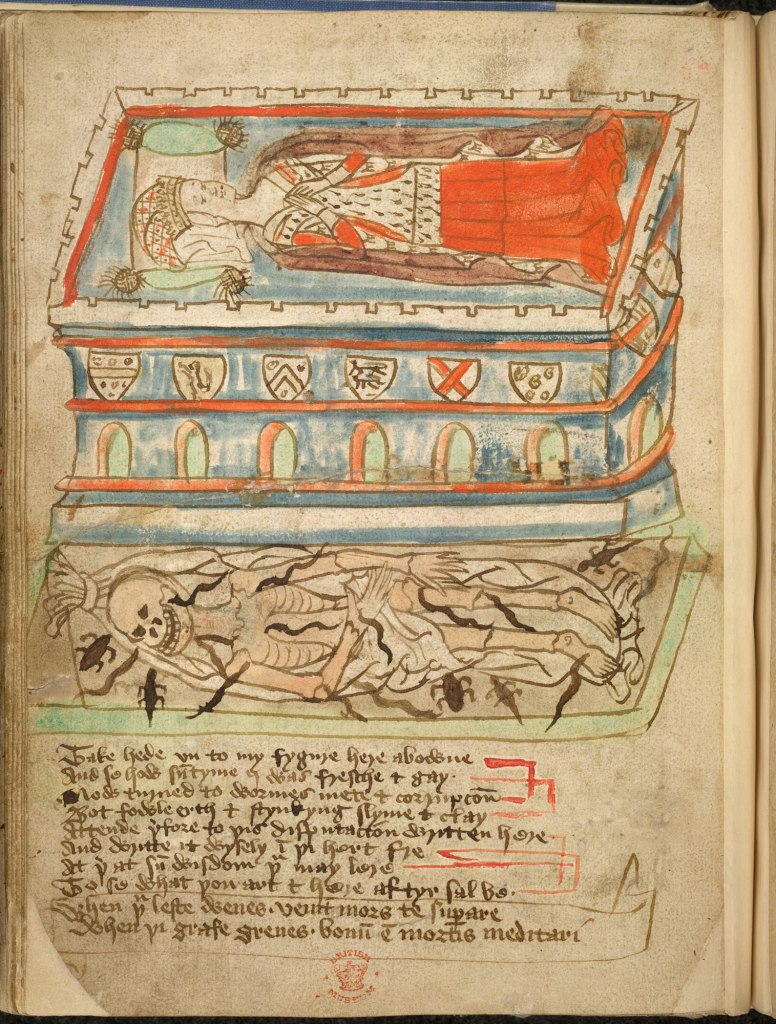 Take hede vn to my fygure here abowne
And se how sūtyme I was fresche & gay
Now turned to wormes mete & corrupcoū
Bot fowle erth & stynkyng slyme & clay
Attende þfore to þis disputacion written here
And writte it wysely ī þi hert fre
At þ at sū wisdom þu may lere
To se what þou art & here aftyr sal be
When þu leste wenes · venit mors te supare
When þi grafe grenes · bonū ē mortis meditari
BRITISH MUSEUM